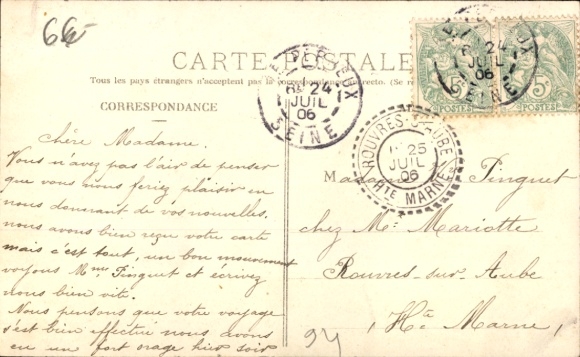 66
CARTE POSTALE
Tous les pays étrangers n'acceptent pas la correspondance au recto. (Se
CORRESPONDANCE
Chère Madame.
Vous n'avez pas l'air de penser
que vous nous feriez plaisir en
nous donnant de vos nouvelles.
nous avons bien reçu votre carte
mais c'est tout, un bon mouvement
voyons Mme Pinguet et écrivez
nous bien vite.
Nous pensons que votre voyage
s'est bien effectué nous avons
eu un fort orage hier soir
24
JUIL
06
SEINE
24
JUIL
06
SEINE
5c
POSTES
5c
POSTES
ROUVRES-S-AUBE
25
JUIL
06
HTE MARNE
Madame Pinguet
chez Mr Mariotte
Rouvres-sur-Aube
(Hte Marne)
94